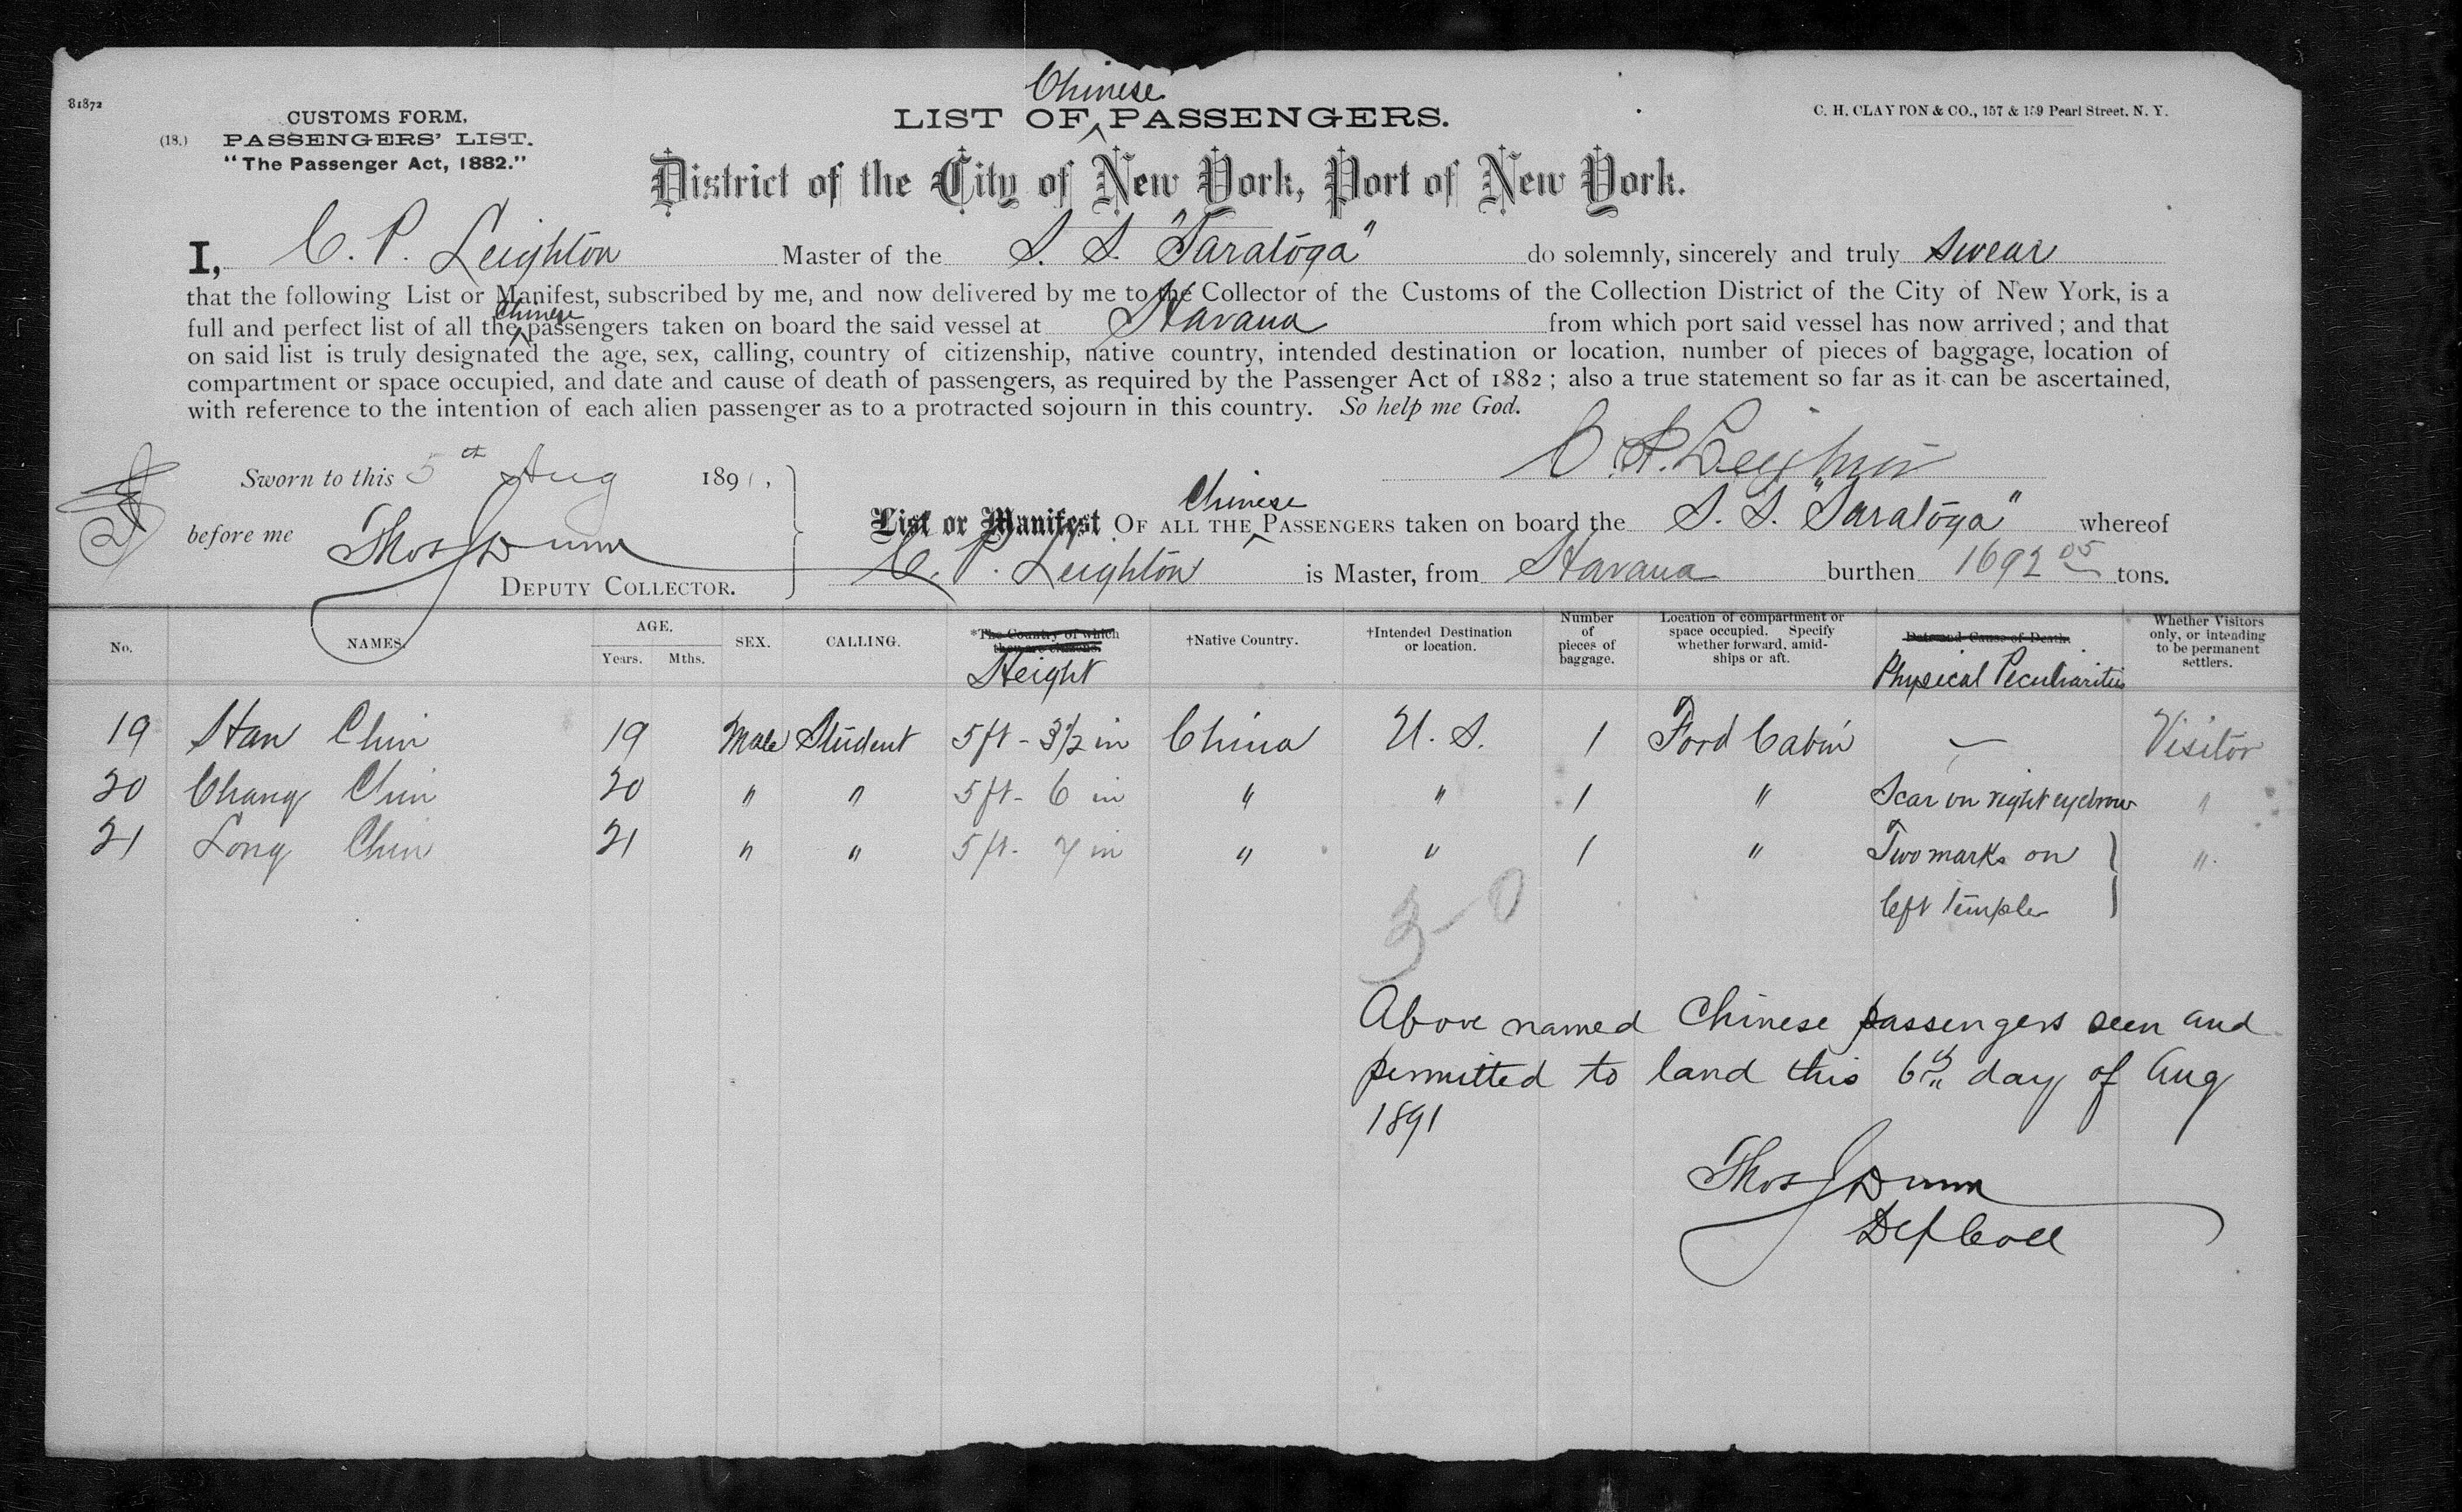 81872
CUSTOMS FORM,
(18.) PASSENGERS' LIST.
"The Passenger Act, 1882."
Chinese
LIST OF PASSENGERS.
C. H. CLAYTON & CO., 157 & 159 Pearl Street, N. Y.
District of the City of New York, Port of New York.
I, C. P. Leighton Master of the S. S. "Saratoga" do solemnly, sincerely and truly swear
that the following List or Manifest, subscribed by me, and now delivered by me to the Collector of the Customs of the Collection District of the City of New York, is a
full and perfect list of all the Chinese passengers taken on board the said vessel at Havana from which port said vessel has now arrived; and that
on said list is truly designated the age, sex, calling, country of citizenship, native country, intended destination or location, number of pieces of baggage, location of
compartment or space occupied, and date and cause of death of passengers, as required by the Passenger Act of 1882; also a true statement so far as it can be ascertained,
with reference to the intention of each alien passenger as to a protracted sojourn in this country. So help me God.
C. P. Leighton
Sworn to this 5th Aug 1891,
before me Thos J Dunn
DEPUTY COLLECTOR.
List or Manifest OF ALL THE Chinese PASSENGERS taken on board the S. S. "Saratoga" whereof
C. P. Leighton is Master, from Havana burthen 1692 05 tons.
No. NAMES. AGE. Years. Mths. SEX. CALLING. *The Country of which they are citizens. Height †Native Country. †Intended Destination or location. Number of pieces of baggage. Location of compartment or space occupied. Specify whether forward, amidships or aft. Date and Cause of Death. Physical Peculiarities Whether Visitors only, or intending to be permanent settlers.
19 Han Chin 19 Male Student 5 ft - 3 1/2 in China U. S. 1 Ford Cabin — Visitor
20 Chang Chin 20 " " 5 ft - 6 in " " 1 " Scar on right eyebrow "
21 Long Chin 21 " " 5 ft - 7 in " " 1 " Two marks on "
left temple
Above named Chinese passengers seen and
permitted to land this 6th day of Aug
1891
Thos J Dunn
Dep Coll